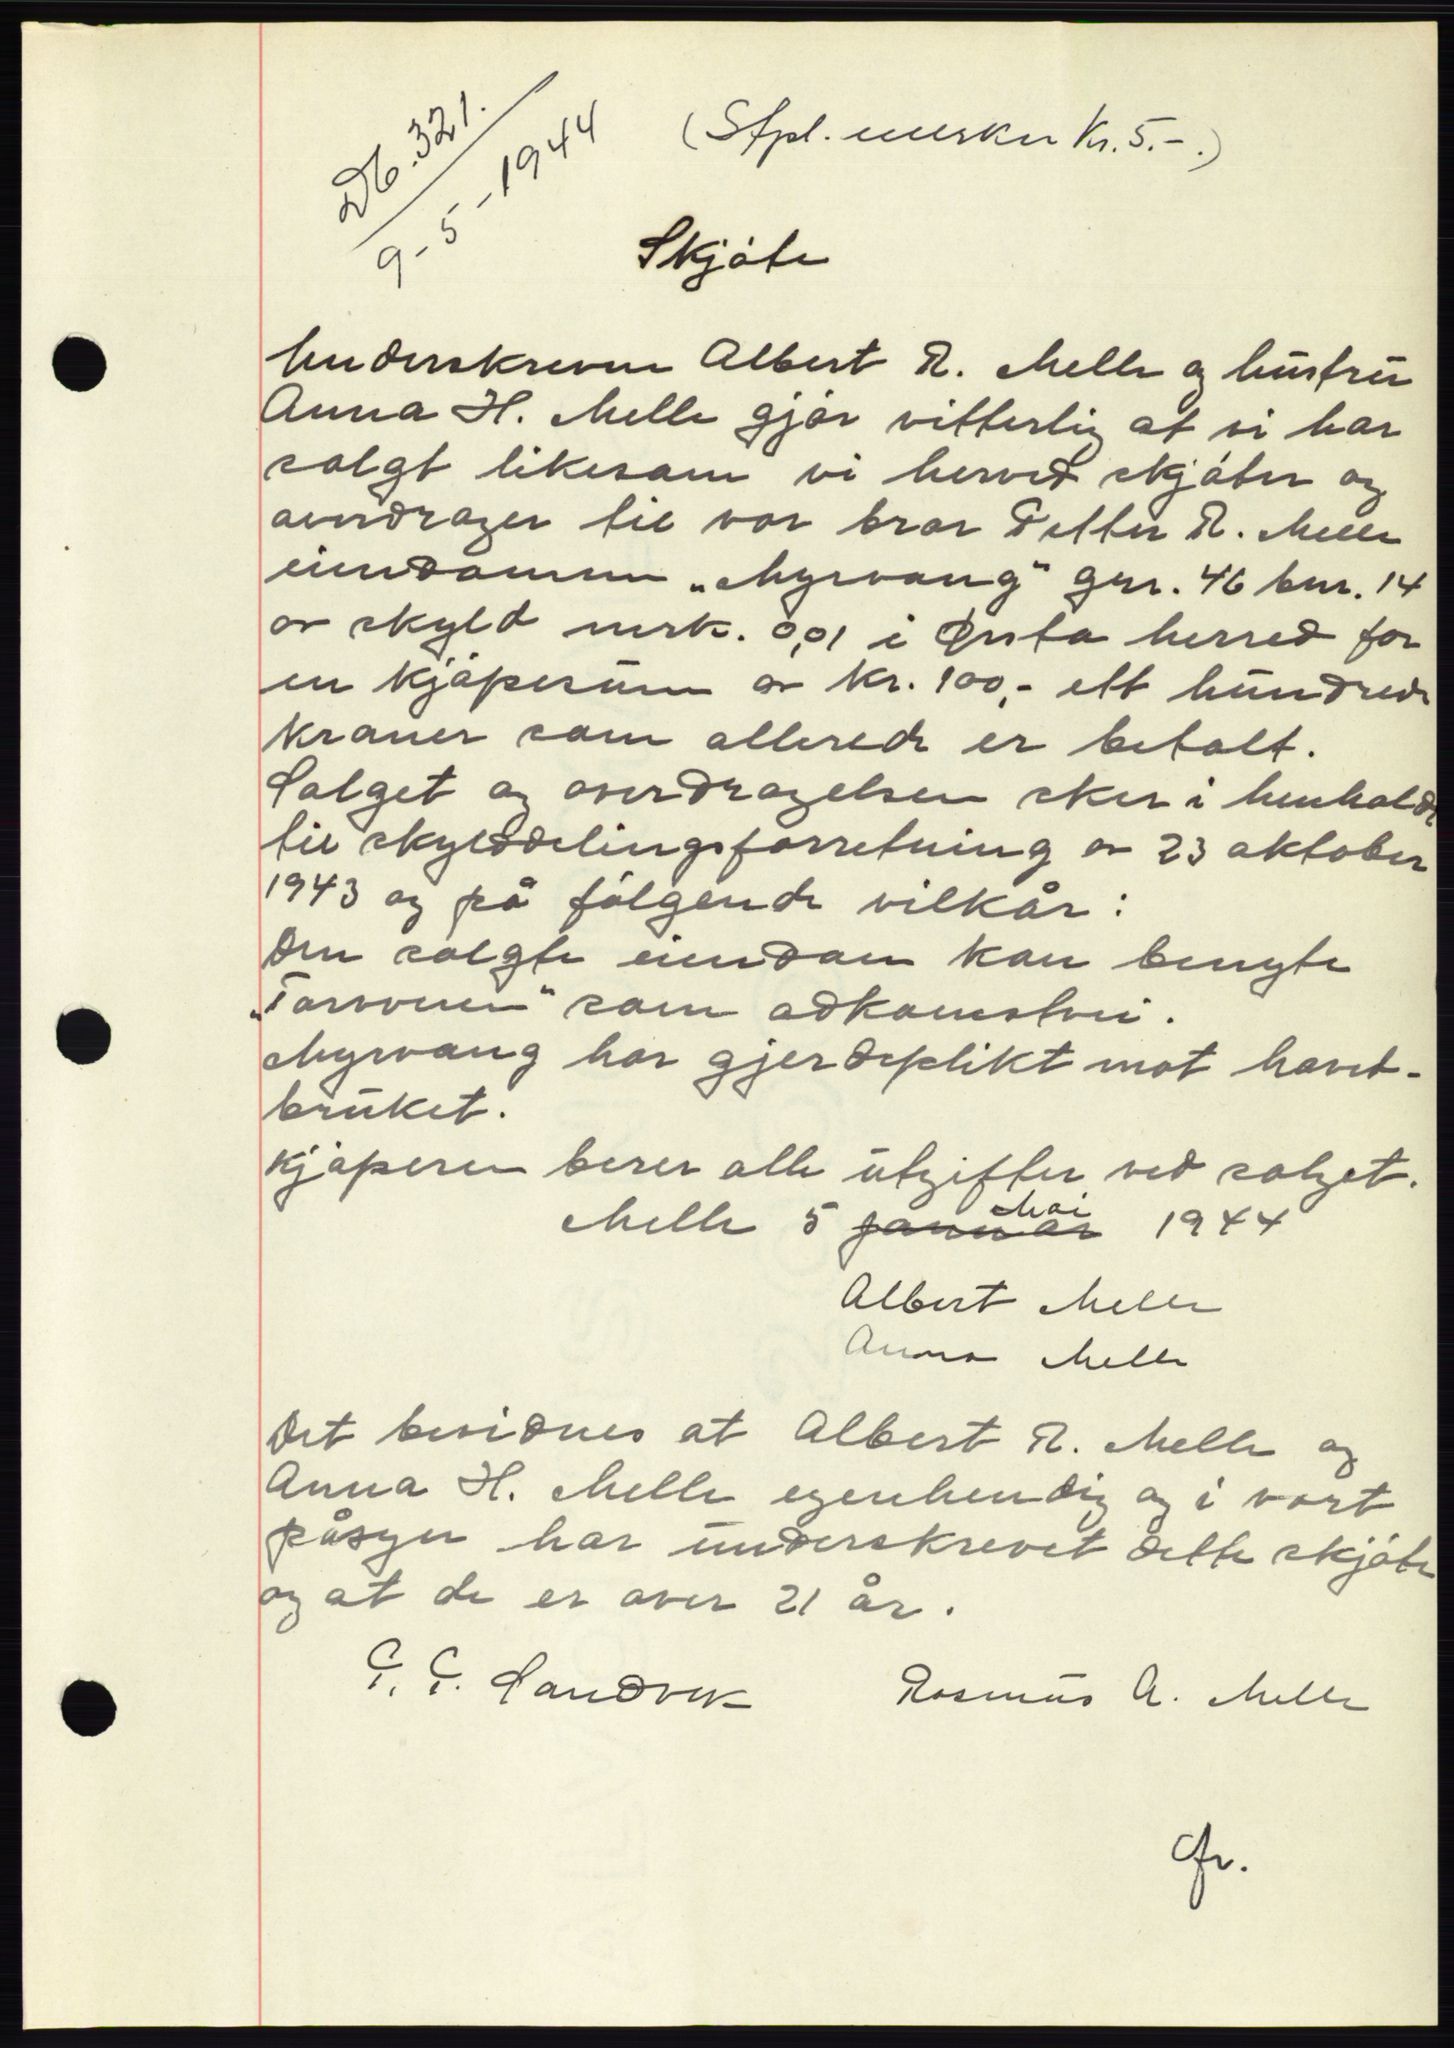 Db. 321.
9-5-1944
(Stpl. merker Kr. 5.-.)
Skjöte
Underskrevne Albert R. Melle og hustru
Anna H. Melle gjör vitterlig at vi har
solgt likesom vi herved skjöter og
overdrager til vor bror Petter R. Melle
eiendommen „Myrvang" gnr. 46 bnr. 14
av skyld mrk. 0,01 i Ørsta herred for
en kjöpesum av kr. 100,- ett hundrede
kroner som allerede er betalt.
Salget og overdragelsen sker i henhold
til skylddelingsforretning av 23 oktober
1943 og på fölgende vilkår:
Den solgte eiendom kan benyte
„Torvveien" som adkomstvei.
Myrvang har gjerdeplikt mot hoved-
bruket.
Kjöperen berer alle utgifter ved salget.
Melle 5 januar Mai 1944
Albert Melle
Anna Melle
Det bevidnes at Albert R. Melle og
Anna H. Melle egenhendig og i vort
påsyn har underskrevet dette skjöte
og at de er over 21 år.
Sandvik Rasmus A. Melle